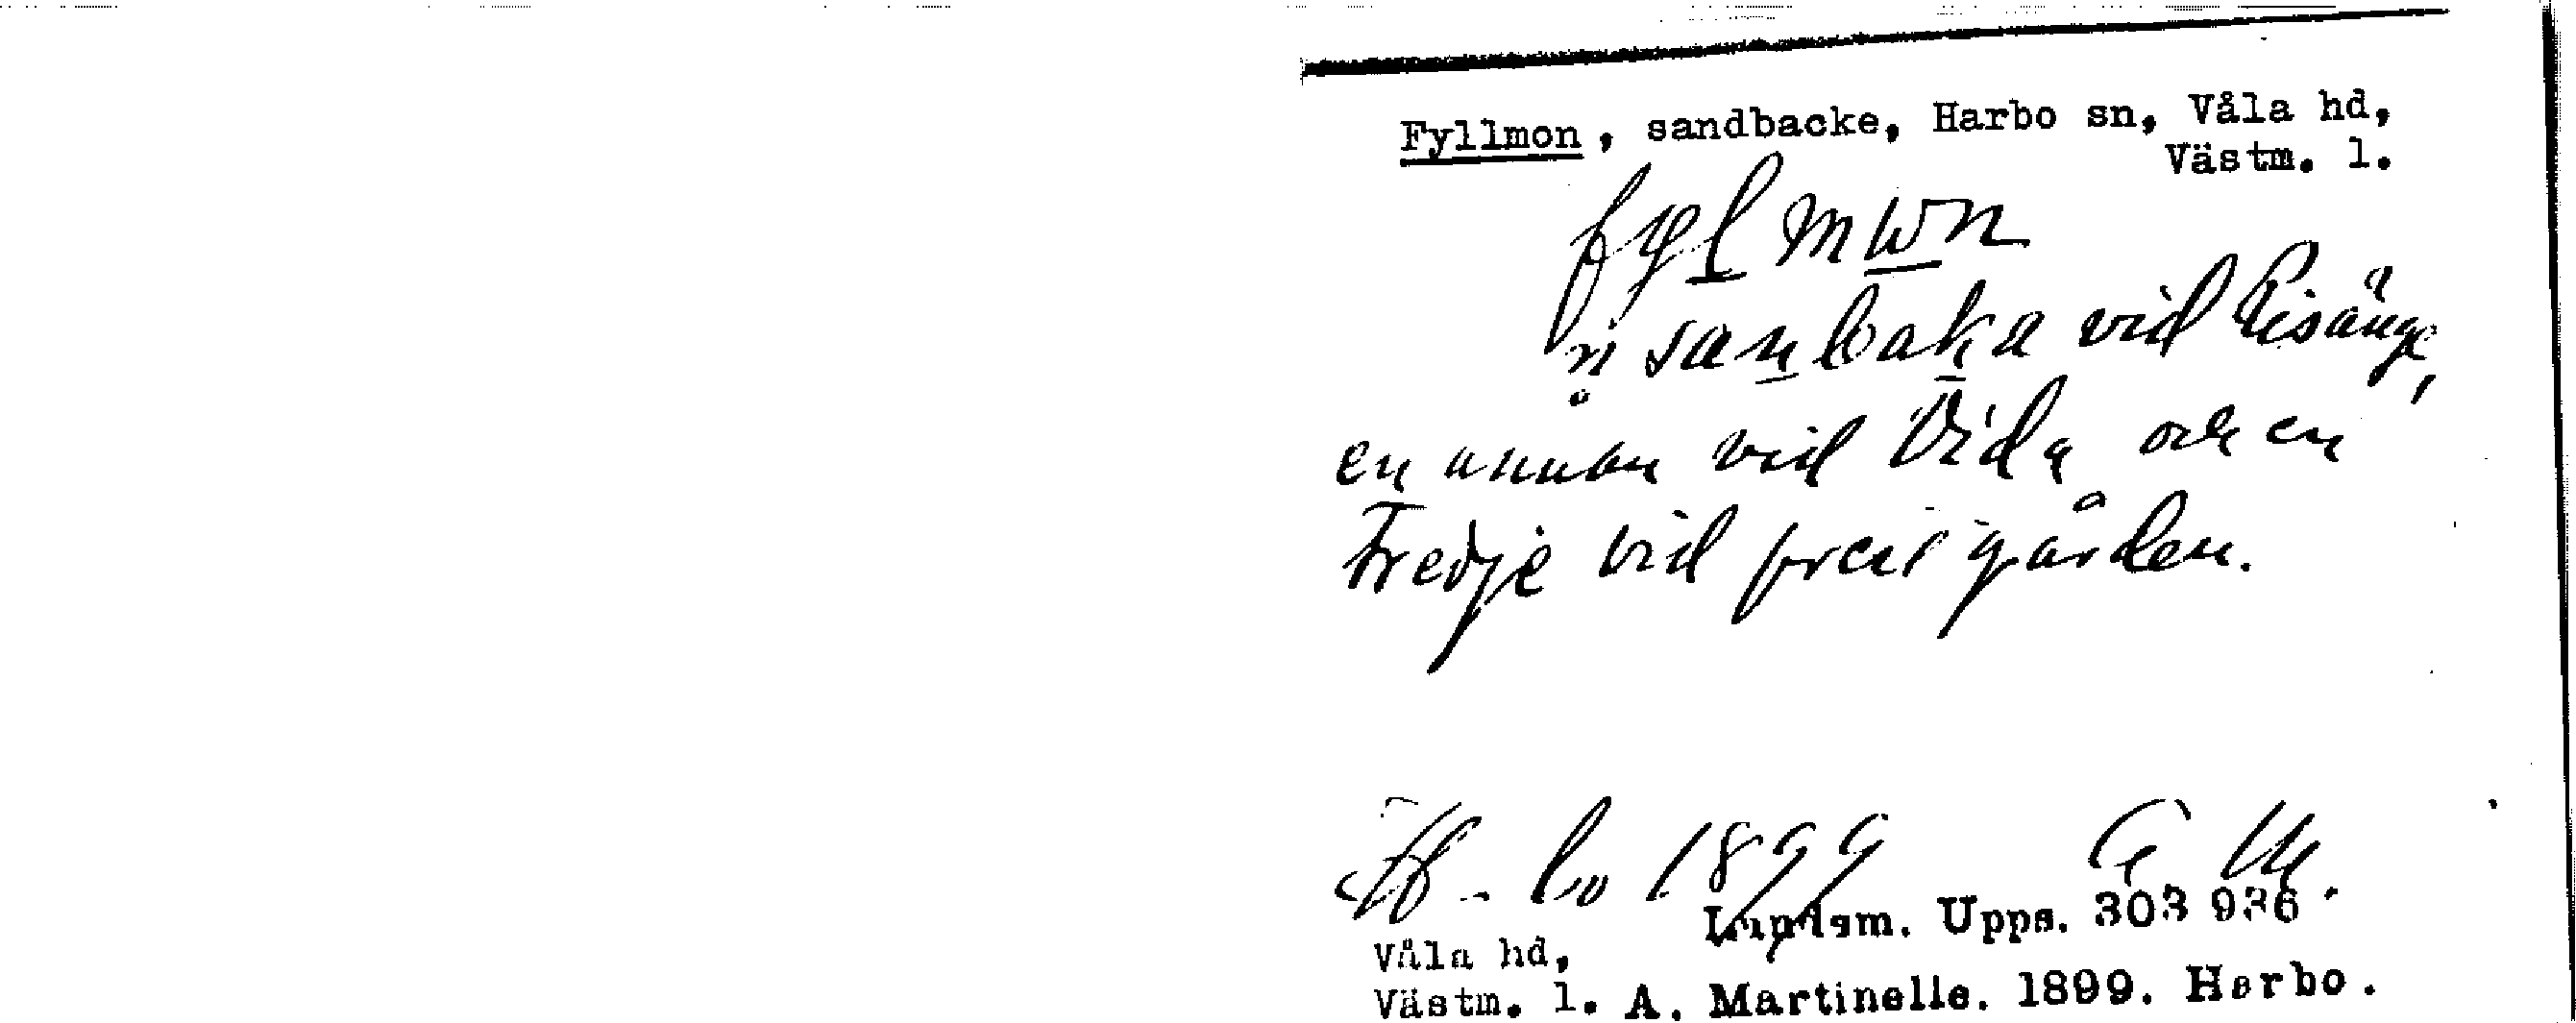 Fyllmon, sandbacke, Harbo sn, Våla hd,
Västm. l.
fyl mωn
n̥ sanbaka vid Risänge,
en annan vid Vida och en
Tredje vid prestgården.
H-bo 1899 A M.
Landsm. Upps. 303 936
Våla hd,
Västm. l. A. Martinelle. 1899. Harbo.